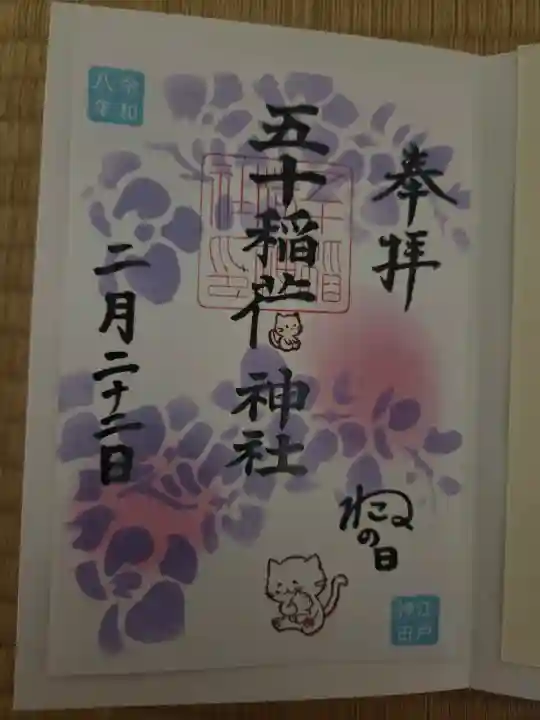 奉拝
ねこの日
五十稲荷神社
二月二十二日
令和
八年
江戸
神田